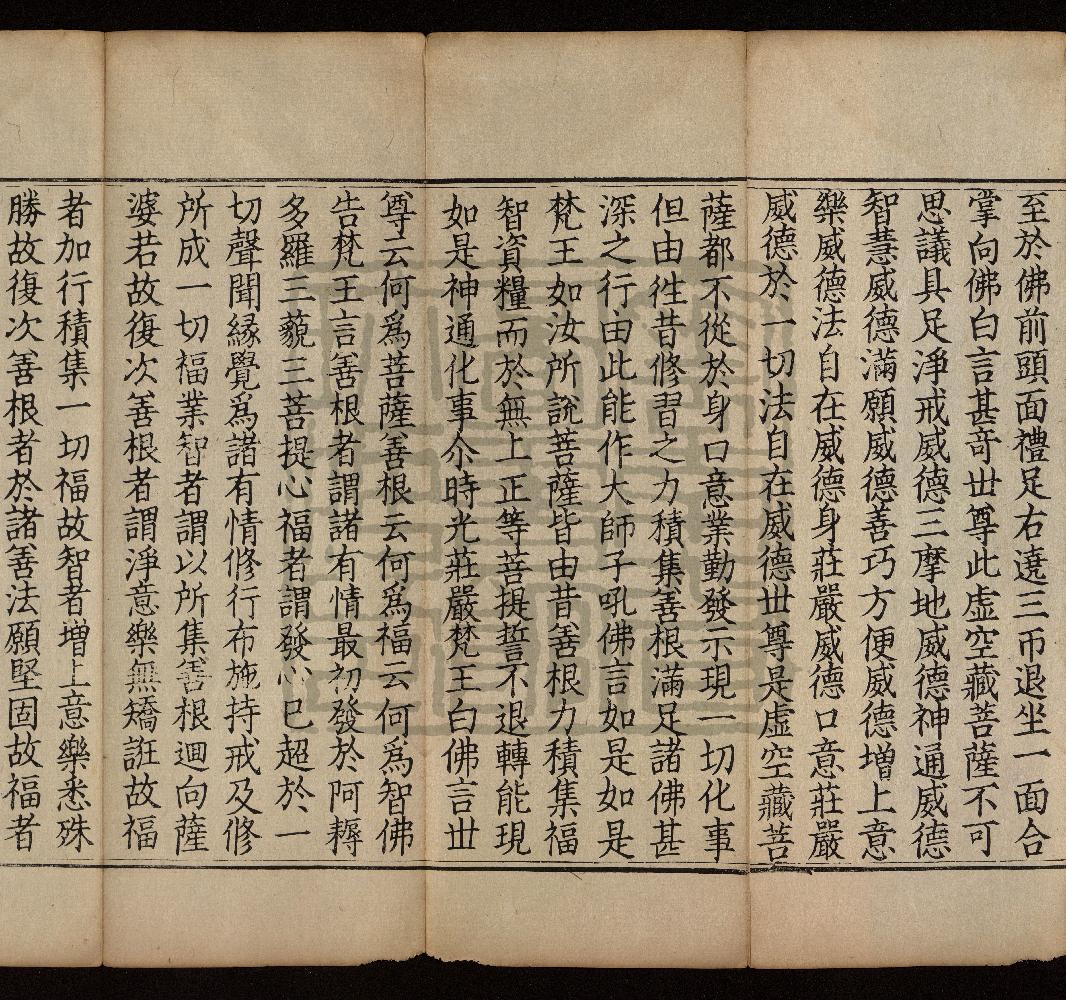 至於佛前頭面禮足右遶三帀退坐一面合
掌向佛白言甚奇世尊此虛空藏菩薩不可
思議具足淨戒威德三摩地威德神通威德
智慧威德滿願威德善巧方便威德增上意
樂威德法自在威德身莊嚴威德口意莊嚴
威德於一切法自在威德世尊是虛空藏菩
薩都不從於身口意業勤發示現一切化事
但由徃昔修習之力積集善根滿足諸佛甚
深之行由此能作大師子吼佛言如是如是
梵王如汝所說菩薩皆由昔善根力積集福
智資糧而於無上正等菩提誓不退轉能現
如是神通化事尒時光莊嚴梵王白佛言世
尊云何爲菩薩善根云何爲福云何爲智佛
告梵王言善根者謂諸有情最初發於阿耨
多羅三藐三菩提心福者謂發心已超於一
切聲聞緣覺爲諸有情修行布施持戒及修
所成一切福業智者謂以所集善根迴向薩
婆若故復次善根者謂淨意樂無矯誑故福
者加行積集一切福故智者增上意樂悉殊
勝故復次善根者於諸善法願堅固故福者